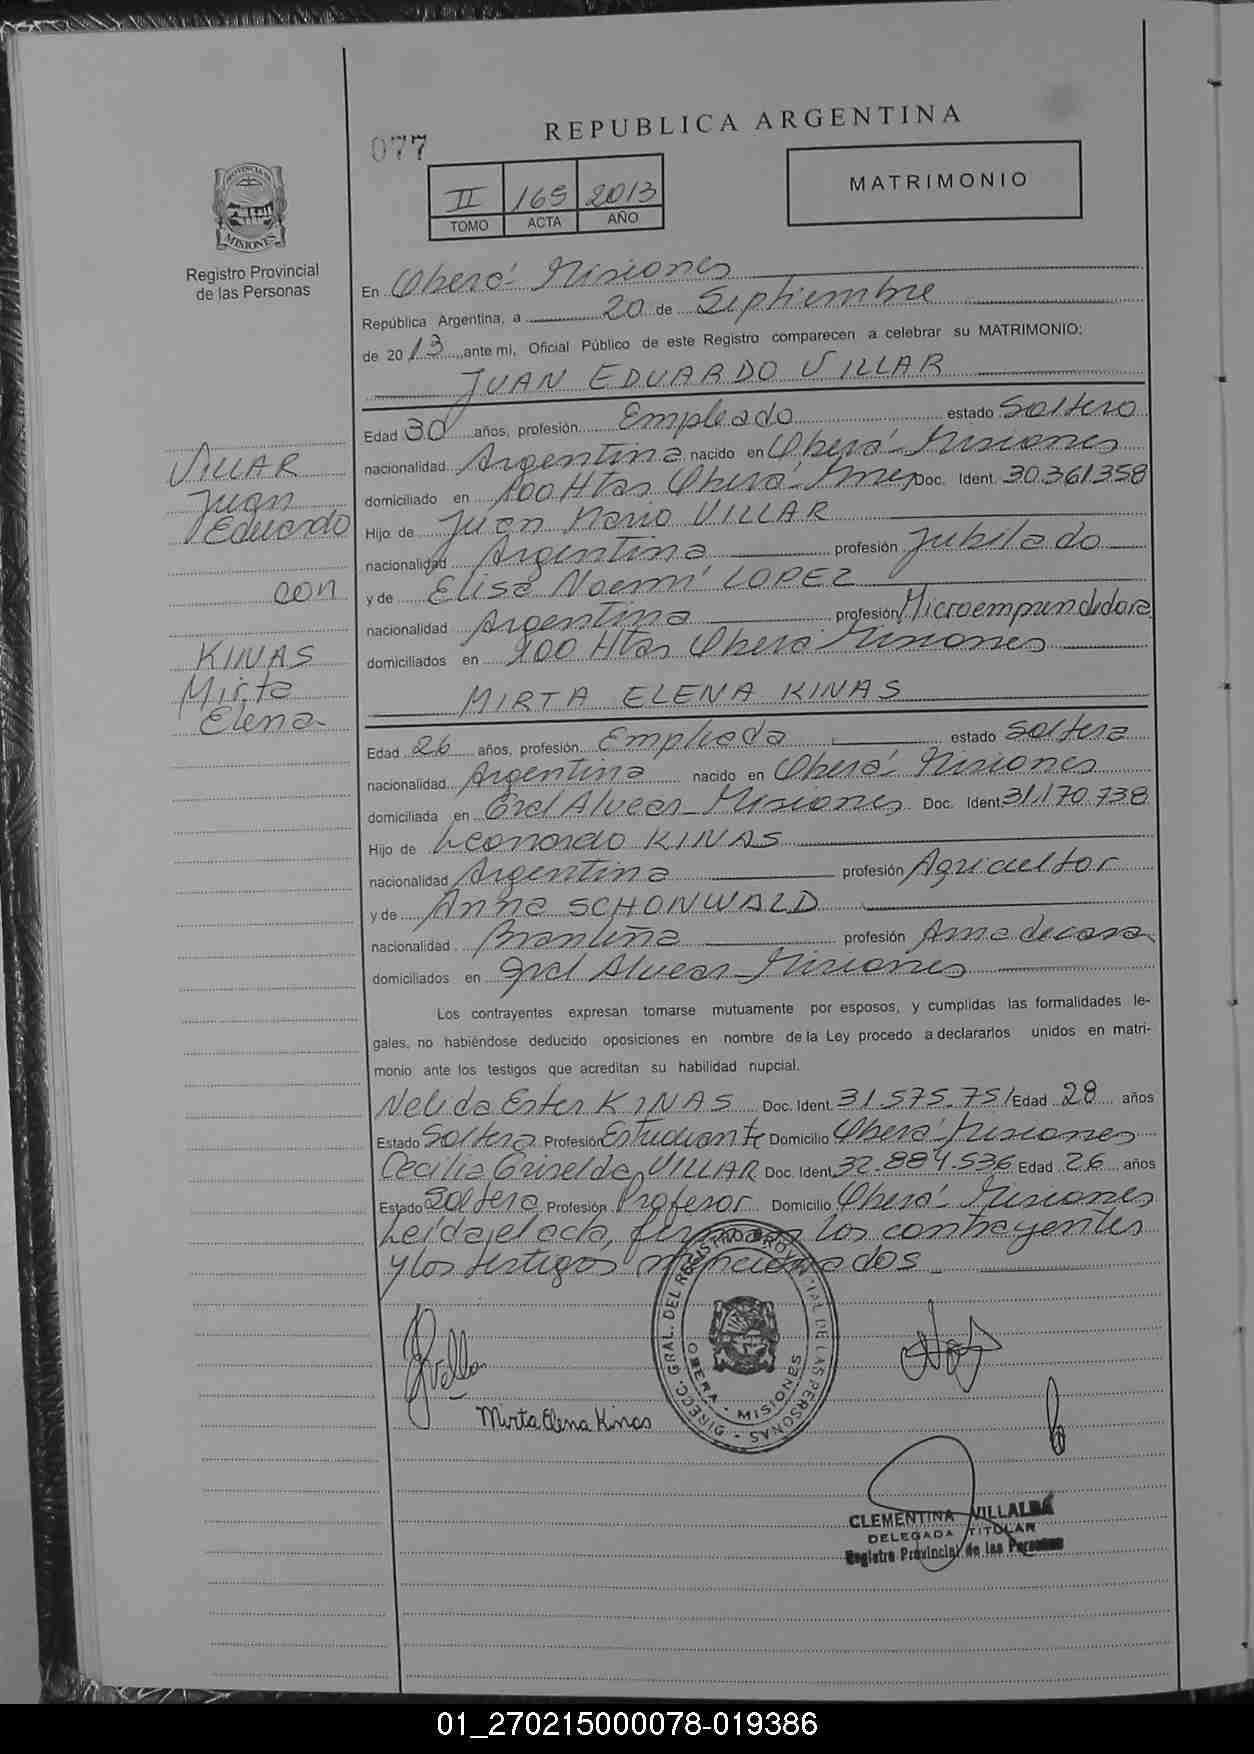 REPUBLICA ARGENTINA
077
MATRIMONIO
II 165 2013
TOMO ACTA AÑO
PROVINCIA DE
MISIONES
Registro Provincial
de las Personas
En Oberá - Misiones
República Argentina, a 20 de Septiembre
de 2013, ante mi, Oficial Público de este Registro comparecen a celebrar su MATRIMONIO:
JUAN EDUARDO VILLAR
Edad 30 años, profesión Empleado estado Soltero
nacionalidad Argentina nacido en Oberá - Misiones
domiciliado en 100 Htas Oberá - Mnes Doc. Ident. 30.361.358
Hijo de Juan Mario VILLAR
nacionalidad Argentina profesión Jubilado
y de Elisa Noemí LOPEZ
nacionalidad Argentina profesión Microemprendedora
domiciliados en 100 Htas Oberá Misiones
MIRTA ELENA KINAS
Edad 26 años, profesión Empleada estado Soltera
nacionalidad Argentina nacido en Oberá - Misiones
domiciliada en Gral Alvear - Misiones Doc. Ident 31.170.738
Hijo de Leonardo KINAS
nacionalidad Argentina profesión Agricultor
y de Anna SCHONWALD
nacionalidad Brasileña profesión Ama de casa
domiciliados en Gral Alvear - Misiones
VILLAR
Juan
Eduardo
con
KINAS
Mirta
Elena
Los contrayentes expresan tomarse mutuamente por esposos, y cumplidas las formalidades le-
gales, no habiéndose deducido oposiciones en nombre de la Ley procedo a declararlos unidos en matri-
monio ante los testigos que acreditan su habilidad nupcial.
Nelida Ester KINAS Doc. Ident. 31.575.751 Edad 28 años
Estado Soltera Profesión Estudiante Domicilio Oberá - Misiones
Cecilia Griselda VILLAR Doc. Ident. 32.884.536 Edad 26 años
Estado Soltera Profesión Profesor Domicilio Oberá - Misiones
Leída el acta, firman los contrayentes
y los testigos mencionados
DIRECC. GRAL. DEL REGISTRO PROVINCIAL DE LAS PERSONAS
OBERA - MISIONES
Mirta Elena Kinas
CLEMENTINA VILLALBA
DELEGADA TITULAR
Registro Provincial de las Personas
01_270215000078-019386